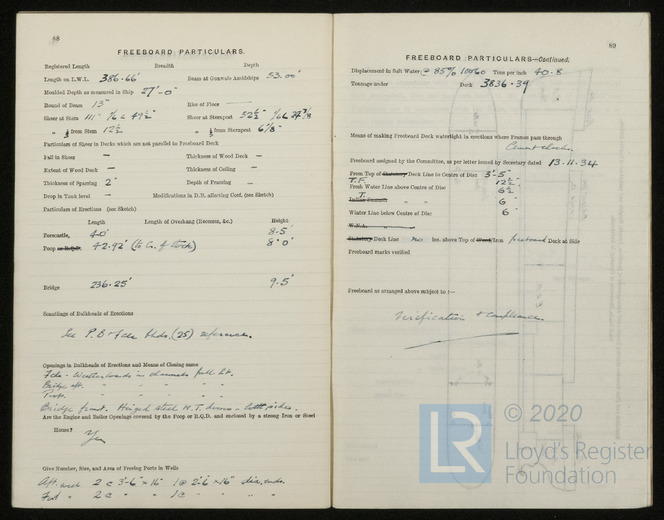 88
FREEBOARD PARTICULARS.
Registered Length Breadth Depth
Length on L.W.L. 386.66' Beam at Gunwale Amidships 53.00'
Moulded Depth as measured in Ship 27'-0"
Round of Beam 13" Rise of Floor —
Sheer at Stem 111" Sheer at Sternpost 52½"
" ⅛ from Stem " ⅛ from Sternpost 6⅞"
Particulars of Sheer in Decks which are not parallel to Freeboard Deck
Fall in Sheer — Thickness of Wood Deck —
Extent of Wood Deck — Thickness of Ceiling —
Thickness of Sparring 2" Depth of Framing —
Drop in Tank level — Modifications in D.B. affecting Conf. (see Sketch)
Particulars of Erections (see Sketch)
Length Length of Overhang (Recesses, &c.) Height
Forecastle, 40' 8.5'
Poop or R.Q.D. 42.92' (to Cr. of Stock) 8'0"
Bridge 236.25' 9.5'
Scantlings of Bulkheads of Erections
See P.B & Fcle blds. (25) reference.
Openings in Bulkheads of Erections and Means of Closing same
Fcle - Weatherboards in channels full ht.
Bridge aft. " " " " "
Poop. " " " " "
Bridge front. Hinged steel W.T. doors - both sides.
Are the Engine and Boiler Openings covered by the Poop or R.Q.D. and enclosed by a strong Iron or Steel
House? Yes
Give Number, Size, and Area of Freeing Ports in Wells
Aft. well 2 @ 3'-6" × 16" 1 @ 2'-6" × 16" dia. ends.
Ford " 2 @ " " 1 @ " " " "
89
FREEBOARD PARTICULARS—Continued.
Displacement in Salt Water @ 85% 10060 Tons per inch 40.8
Tonnage under Deck 3836.39
Means of making Freeboard Deck watertight in erections where Frames pass through
Cement chocks.
Freeboard assigned by the Committee, as per letter issued by Secretary dated 13.11.34
From Top of Statutory Deck Line to Centre of Disc 3'-5"
T.F. 12½"
Fresh Water Line above Centre of Disc 6½"
T.
Indian Summer " " 6"
Winter Line below Centre of Disc 6"
W.N.A. " "
Statutory Deck Line Ins. above Top of Wood/Iron freeboard Deck at Side
Freeboard marks verified
Freeboard as arranged above subject to :—
Verification & compliance.
LR
© 2020
Lloyd's Register
Foundation